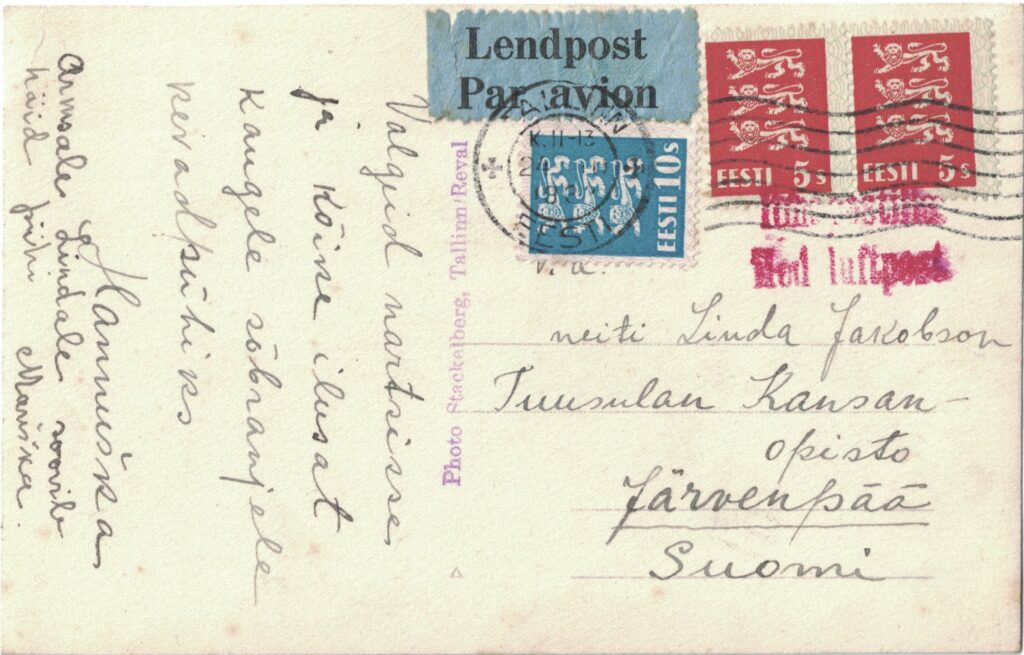 Lendpost
Par avion
EESTI 5s
EESTI 5s
EESTI 10s
TALLINN
K. 11-13
EESTI
Med luftpost
Photo Stackelberg, Tallinn/Reval
neiti Linda Jakobson
Tuusulan Kansan-
opisto
Järvenpää
Suomi
Valgeid nartsisse
ja kõike ilusat
kangele sõbranjele
kevadpühiks
Hannuška
Armsale Lindale soovib
häid pühi Maruška.